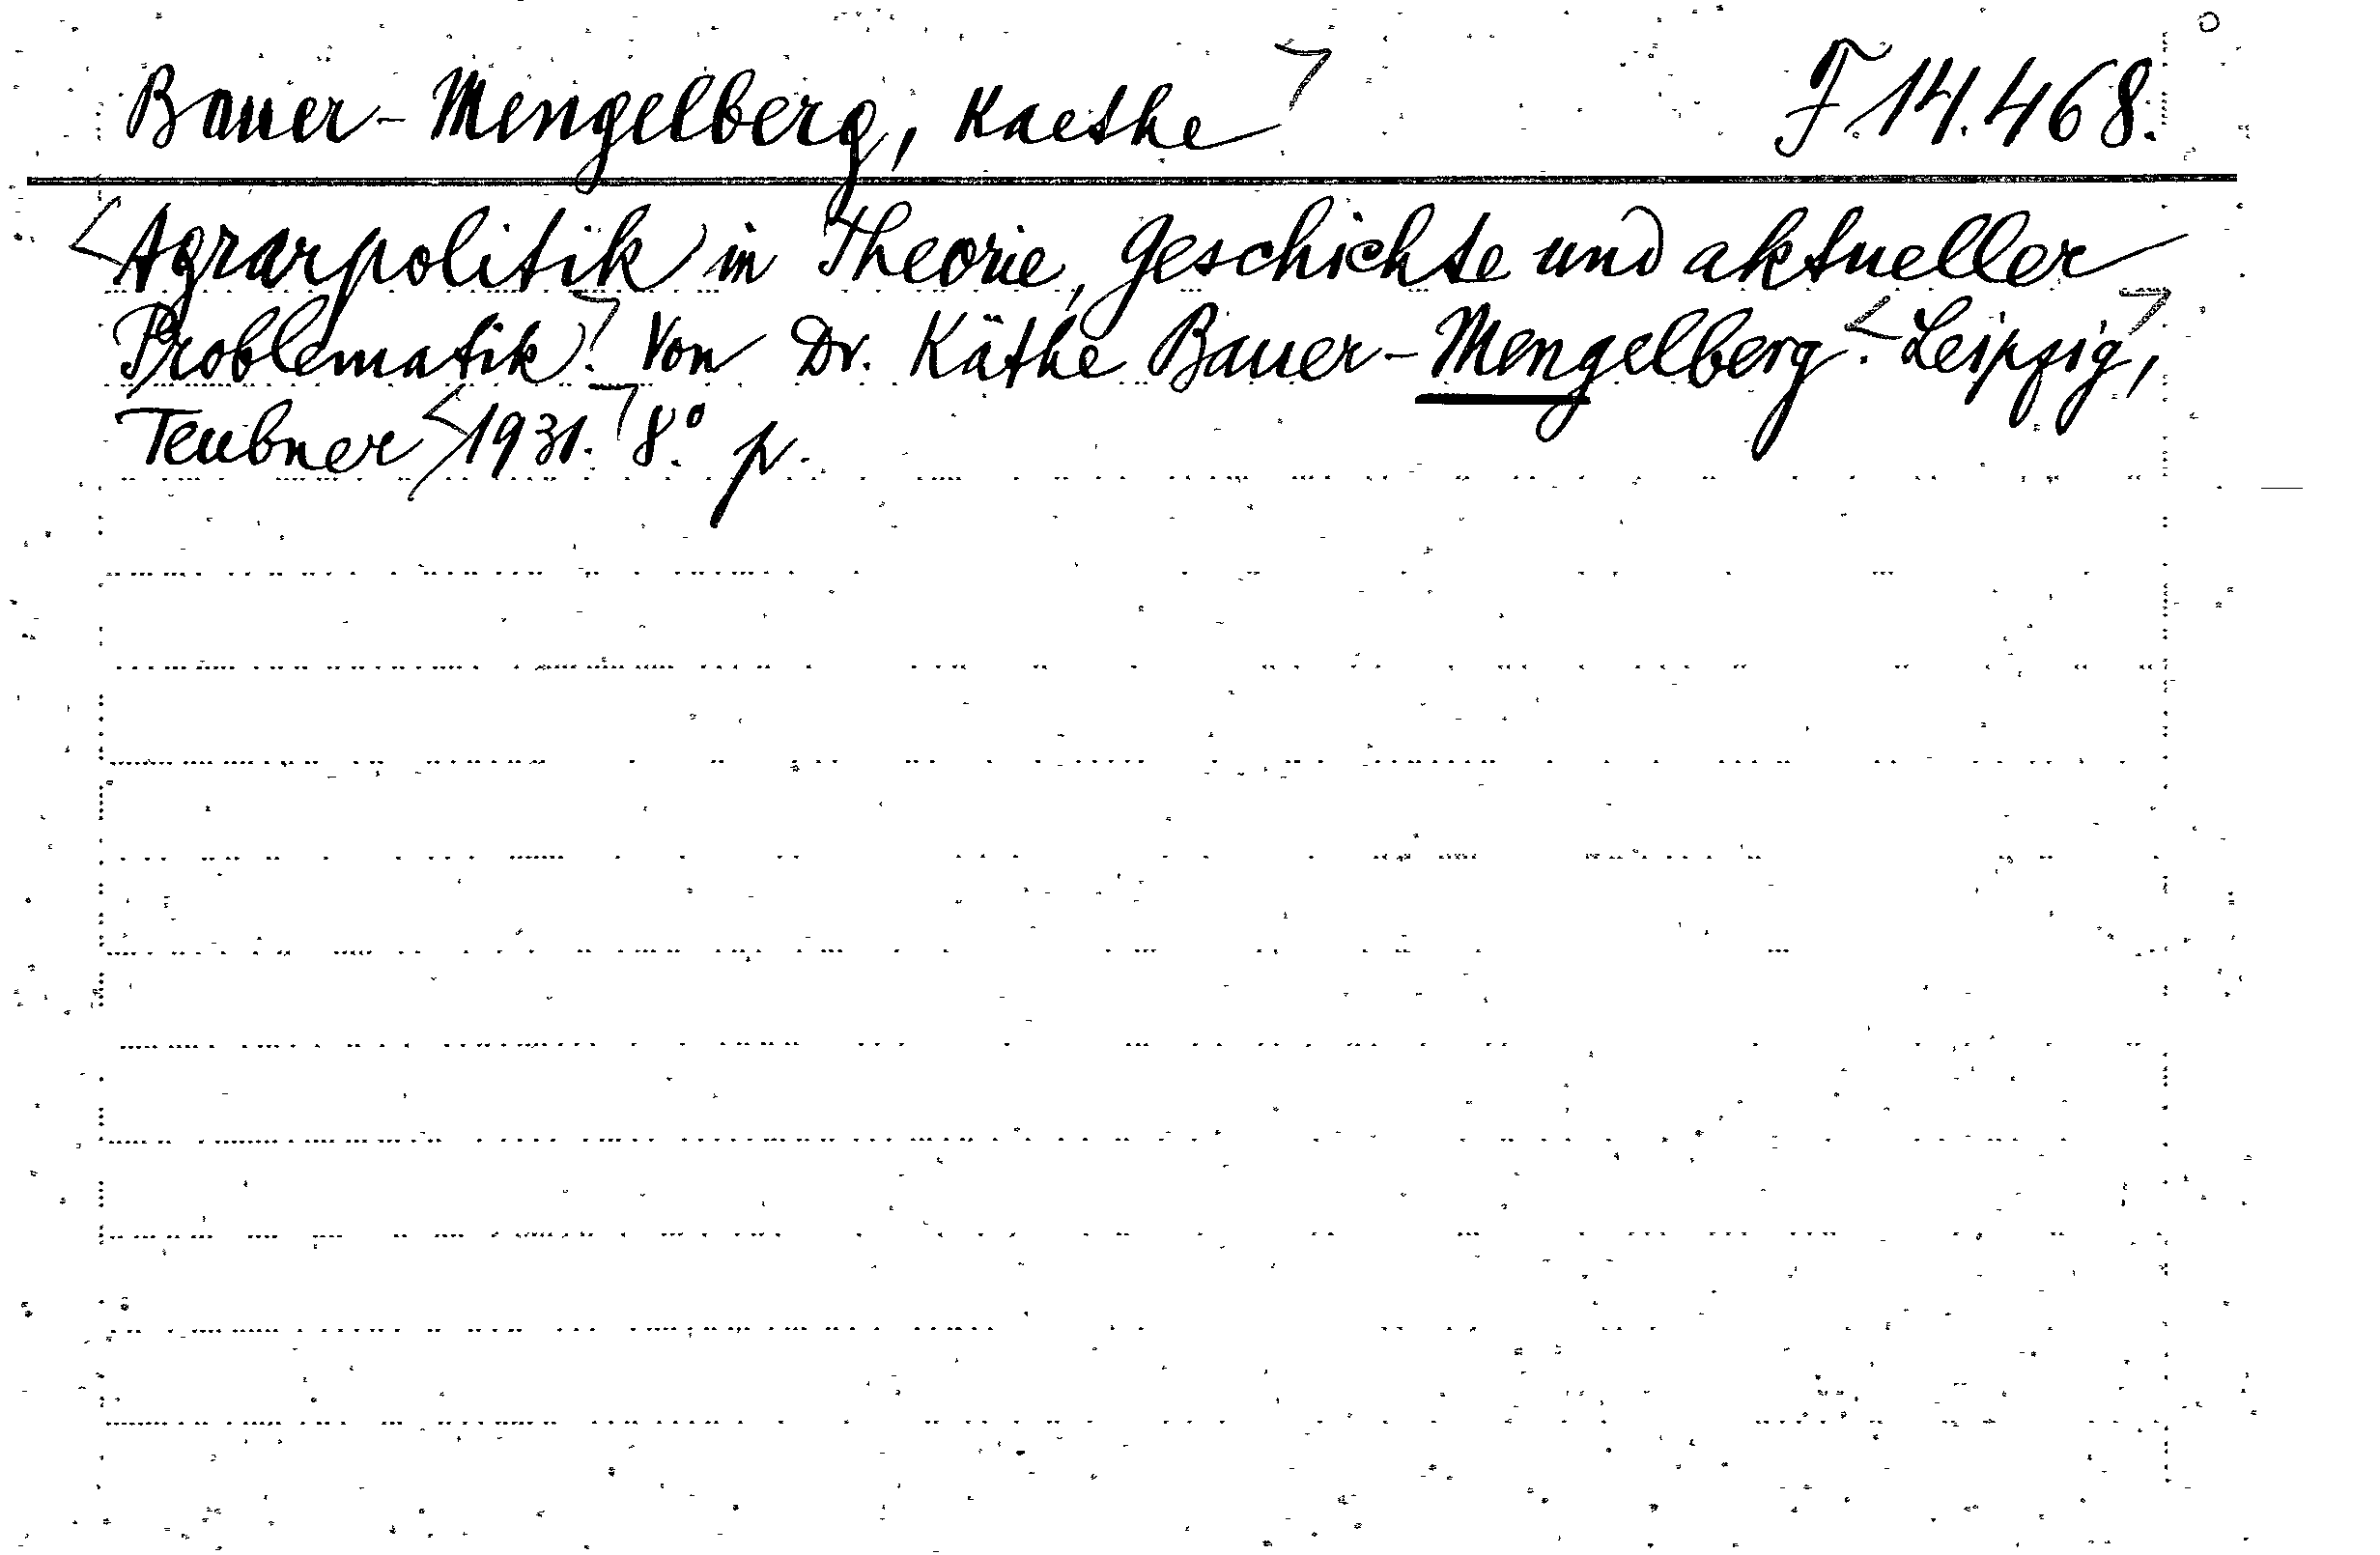 Bauer-Mengelberg, Kaethe F. 14.468.
Agrarpolitik in Theorie, Geschichte und aktueller
Problematik. Von Dr. Käthe Bauer-Mengelberg. Leipzig,
Teubner, 1931. 8°. p.